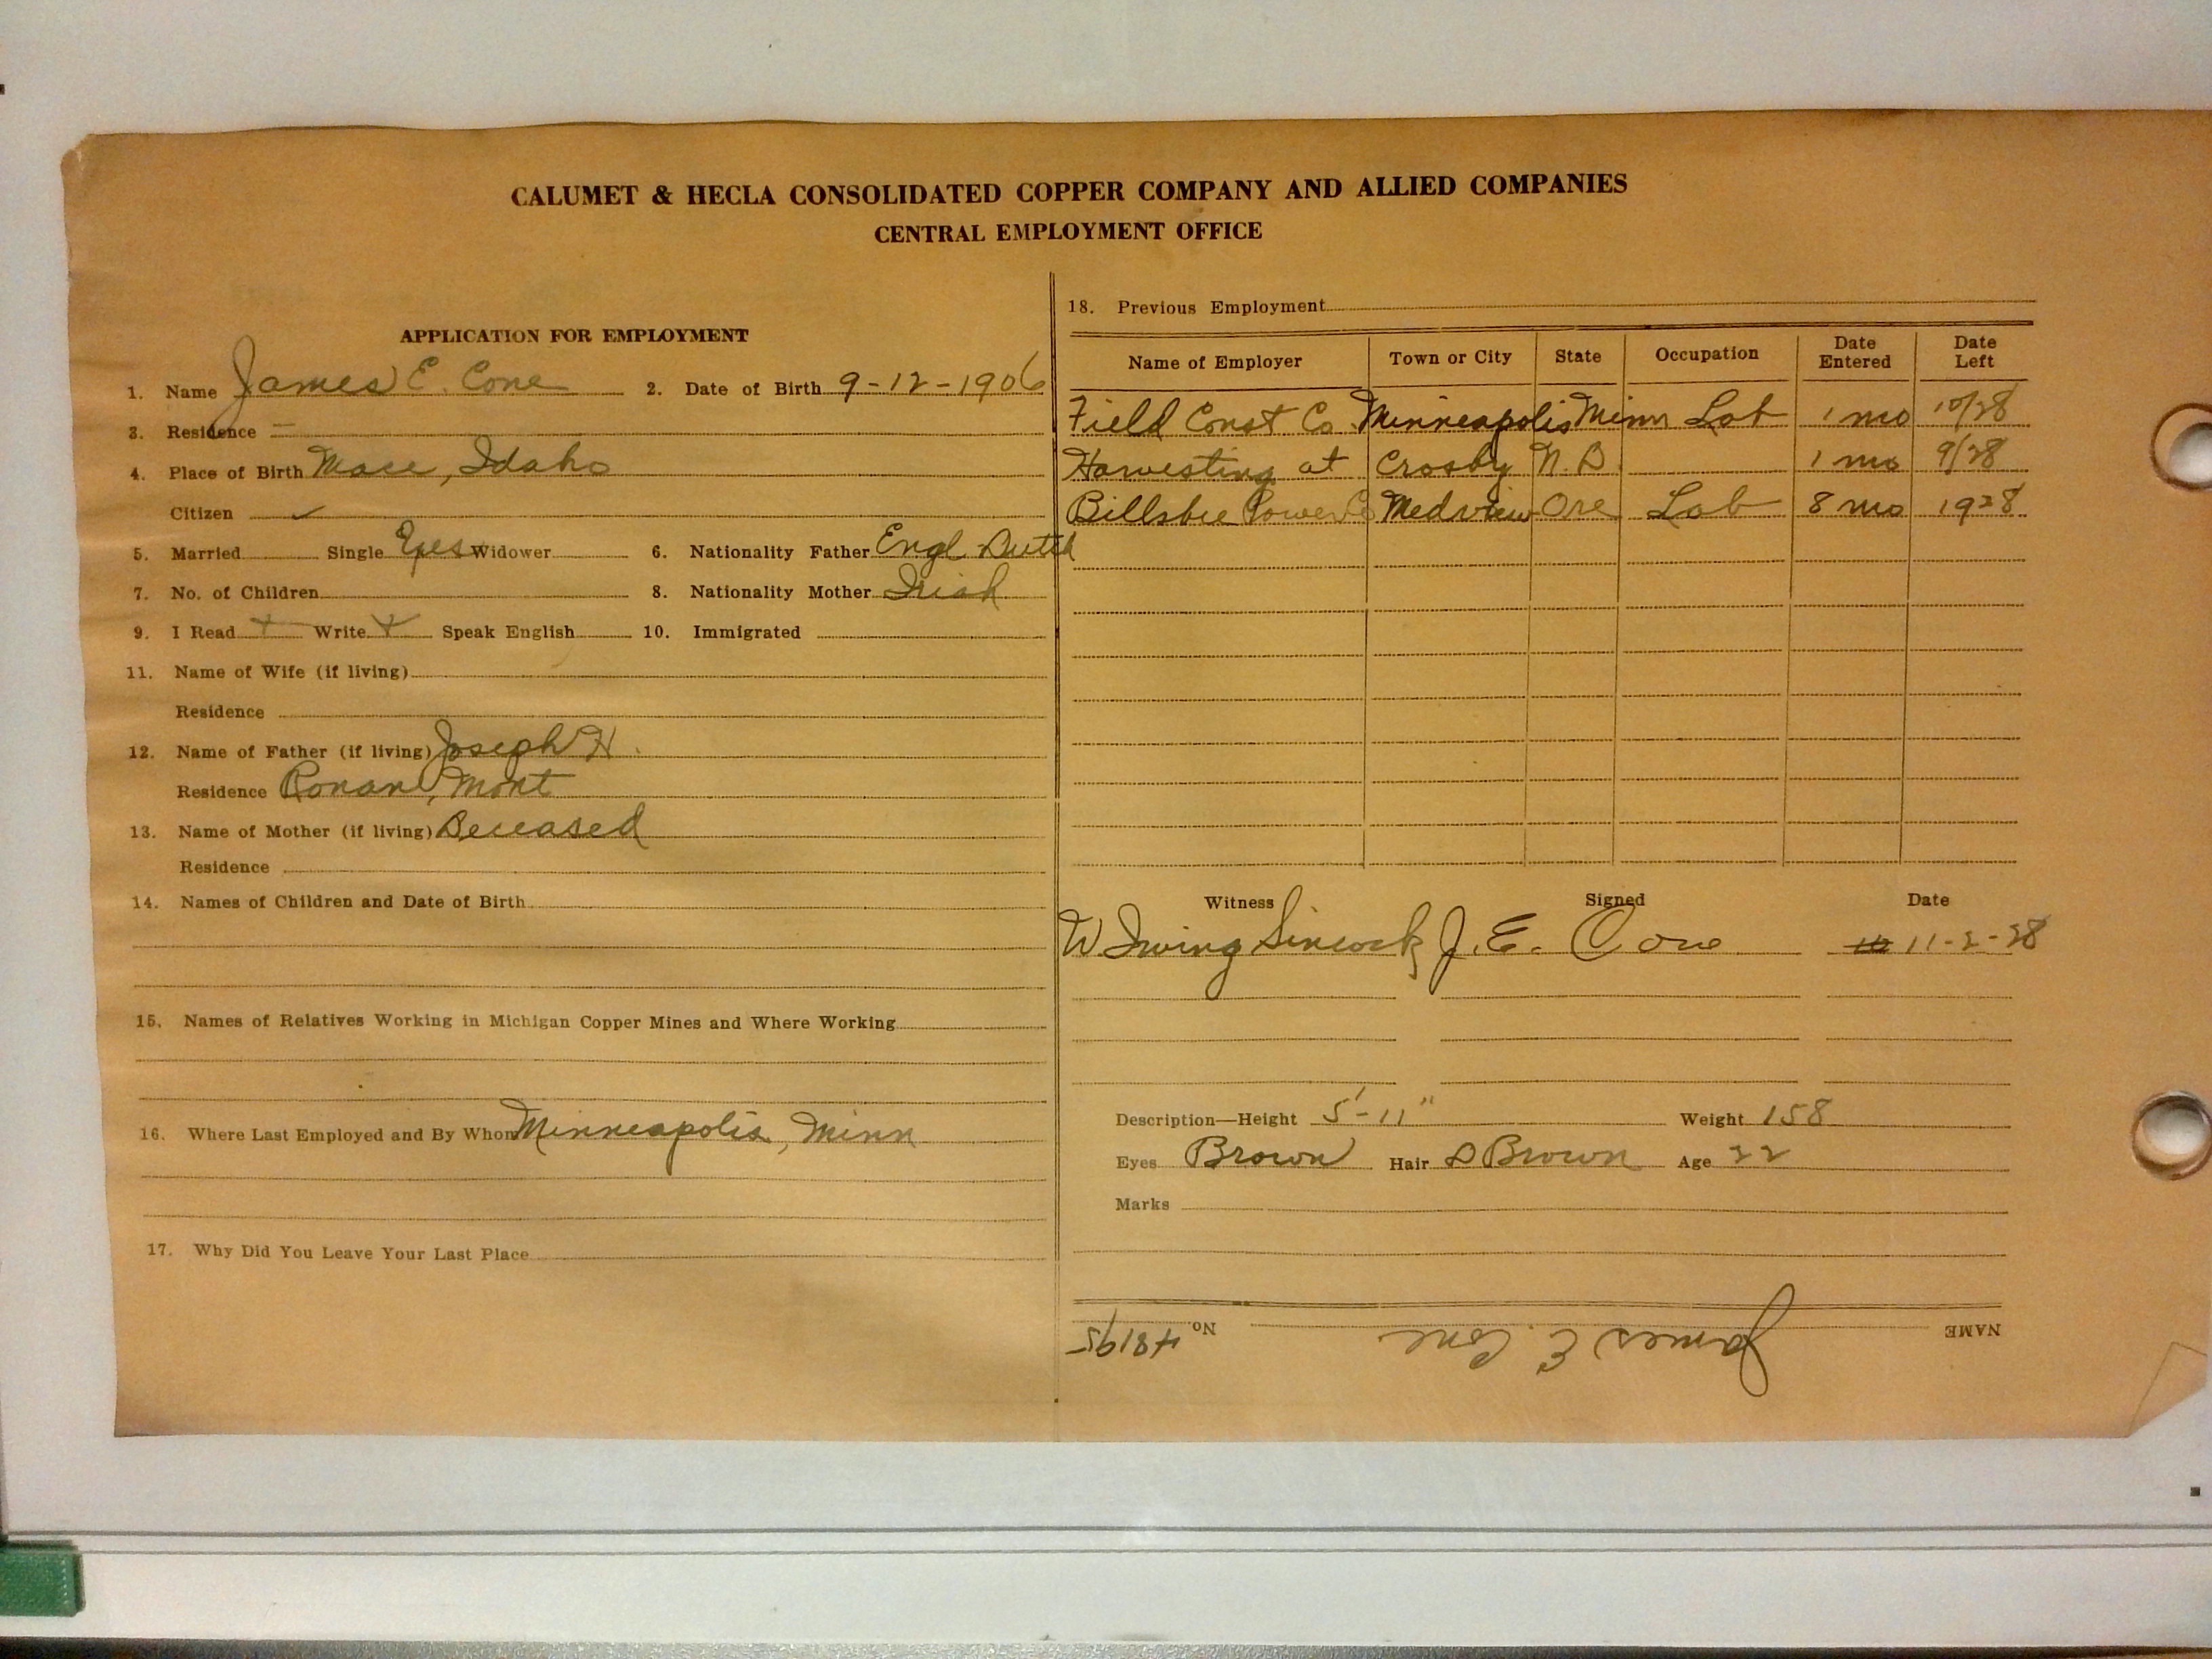 CALUMET & HECLA CONSOLIDATED COPPER COMPANY AND ALLIED COMPANIES
CENTRAL EMPLOYMENT OFFICE
APPLICATION FOR EMPLOYMENT
1. Name James E. Cone 2. Date of Birth 9-12-1906
3. Residence —
4. Place of Birth Mace, Idaho
Citizen ✓
5. Married Single yes Widower 6. Nationality Father Engl Dutch
7. No. of Children 8. Nationality Mother Irish
9. I Read + Write + Speak English 10. Immigrated
11. Name of Wife (if living)
Residence
12. Name of Father (if living) Joseph H.
Residence Ronan, Mont
13. Name of Mother (if living) Deceased
Residence
14. Names of Children and Date of Birth
15. Names of Relatives Working in Michigan Copper Mines and Where Working
16. Where Last Employed and By Whom Minneapolis, Minn
17. Why Did You Leave Your Last Place
18. Previous Employment
Name of Employer Town or City State Occupation Date Entered Date Left
Field Const Co. Minneapolis Minn Lab 1 mo 10/28
Harvesting at Crosby N.D. 1 mo 9/28
Power Co Medview Ore Lab 8 mo 1928
Witness Signed Date
W Irving Sincock J. E. Cone 11-2-28
Description—Height 5'-11" Weight 158
Eyes Brown Hair D Brown Age 22
Marks
NAME James E. Cone No. 48195